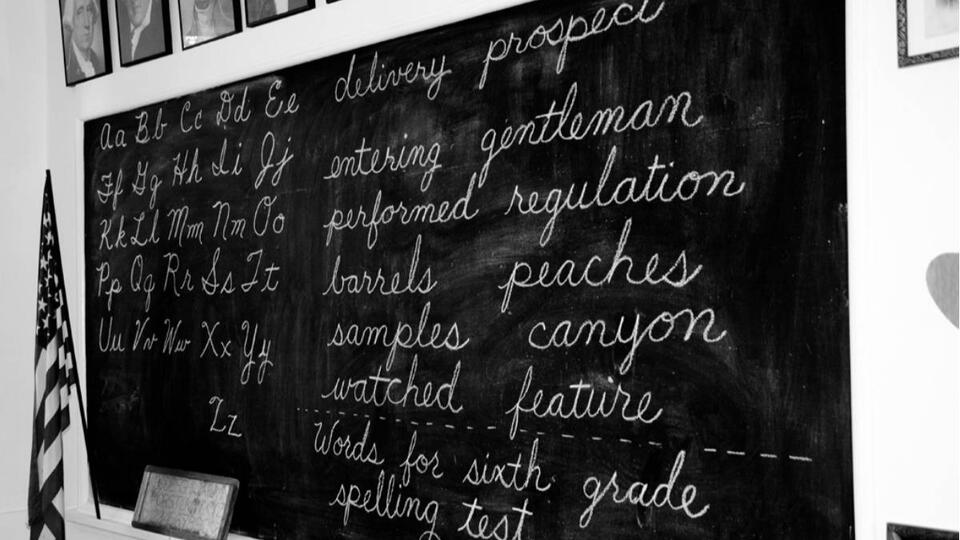 Aa Bb Cc Dd Ee
Ff Gg Hh Ii Jj
Kk Ll Mm Nn Oo
Pp Qq Rr Ss Tt
Uu Vv Ww Xx Yy
Zz
delivery prospect
entering gentleman
performed regulation
barrels peaches
samples canyon
watched feature
Words for sixth grade
spelling test